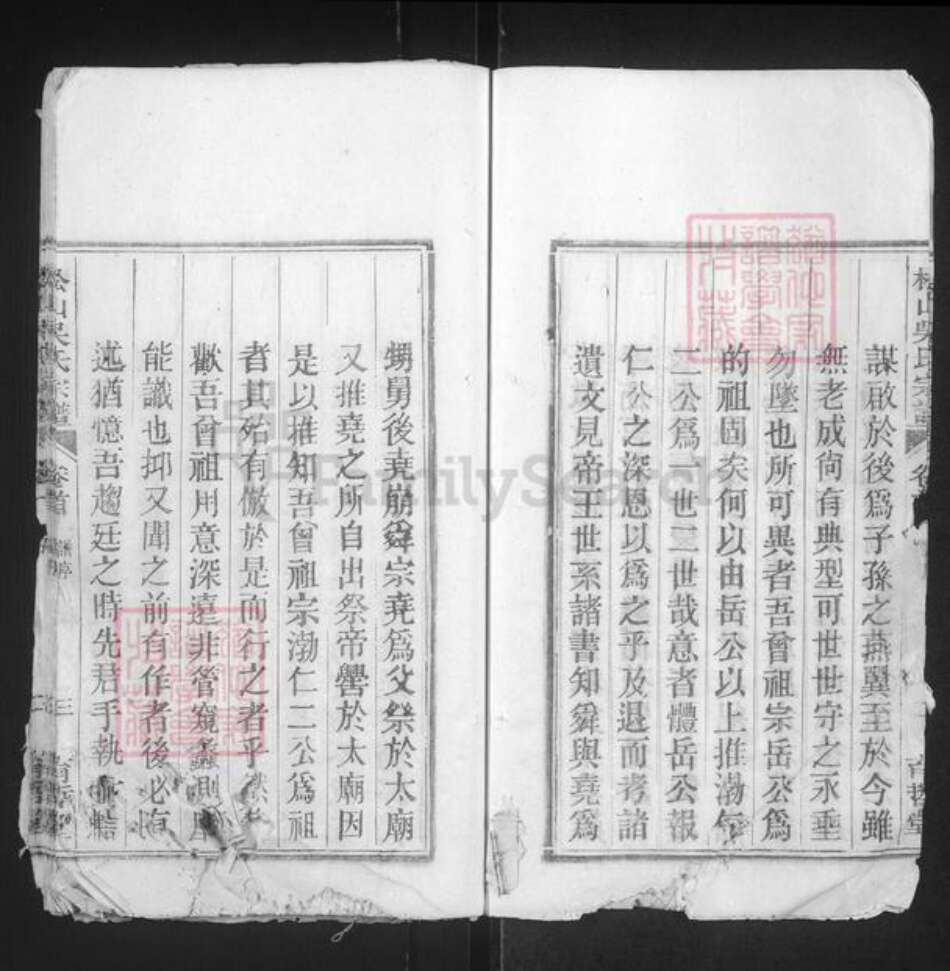 謀啟於後爲子孫之燕翼至於今雖
無老成尙有典型可世世守之永垂
勿墜也所可異者吾曾祖宗岳公爲
的祖固矣何以由岳公以上推渤
二公爲一世二世哉意者體岳公報
仁公之深恩以爲之乎及退而考諸
遺文見帝王世系諸書知舜與堯爲
甥舅後堯崩舜宗堯爲父祭於太廟
又推堯之所自出祭帝嚳於太廟因
是以推知吾曾祖宗渤仁二公爲祖
者其殆有倣於是而行之者乎
歡吾曾祖用意深遠非管窺蠡測
能識也抑又聞之前有作者後必
述猶憶吾趨廷之時先君手執
松山吳氏宗譜
卷首
譜序
三
FamilySearch